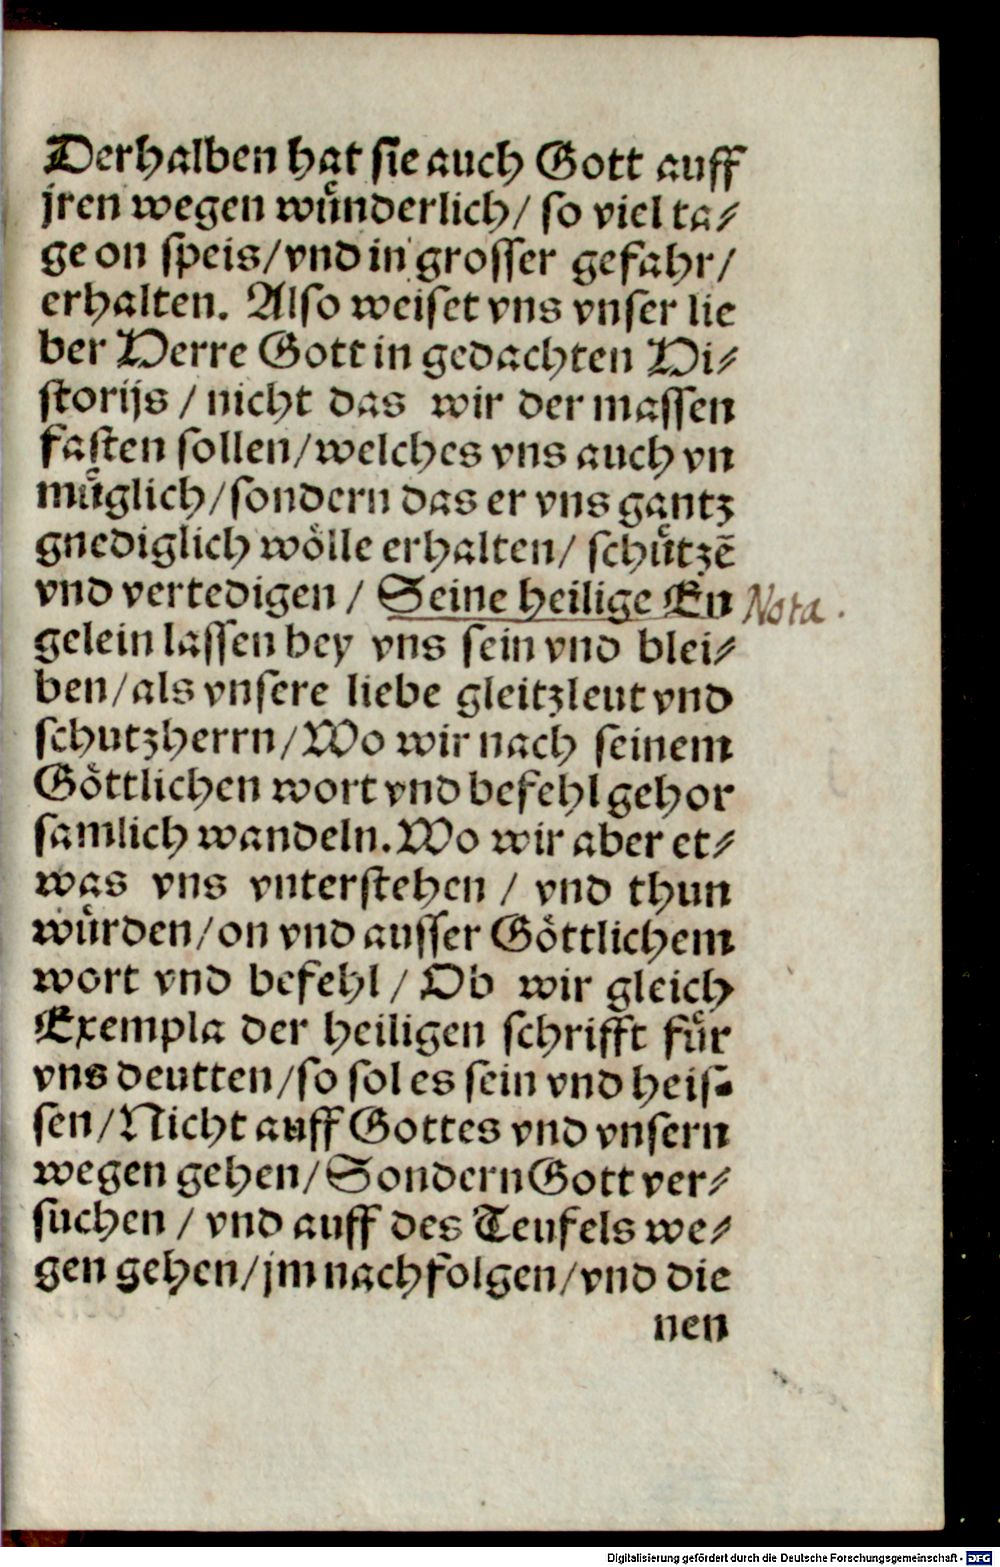 Derhalben hat sie auch Gott auff
jren wegen wuͤnderlich/ so viel ta⸗
ge on speis/vnd in grosser gefahr/
erhalten. Also weiset vns vnser lie
ber Herre Gott in gedachten Hi⸗
storijs / nicht das wir der massen
fasten sollen/welches vns auch vn
muͤglich/sondern das er vns gantz
gnediglich woͤlle erhalten/ schuͤtzē
vnd vertedigen / Seine heilige En Nota.
gelein lassen bey vns sein vnd blei⸗
ben/als vnsere liebe gleitzleut vnd
schutzherrn/Wo wir nach seinem
Goͤttlichen wort vnd befehl gehor
samlich wandeln. Wo wir aber et⸗
was vns vnterstehen / vnd thun
wuͤrden/on vnd ausser Goͤttlichem
wort vnd befehl / Ob wir gleich
Exempla der heiligen schrifft fuͤr
vns deutten/so sol es sein vnd heis⸗
sen/Nicht auff Gottes vnd vnsern
wegen gehen/Sondern Gott ver⸗
suchen / vnd auff des Teufels we⸗
gen gehen/jm nachfolgen/vnd die
nen
Digitalisierung gefördert durch die Deutsche Forschungsgemeinschaft - DFG